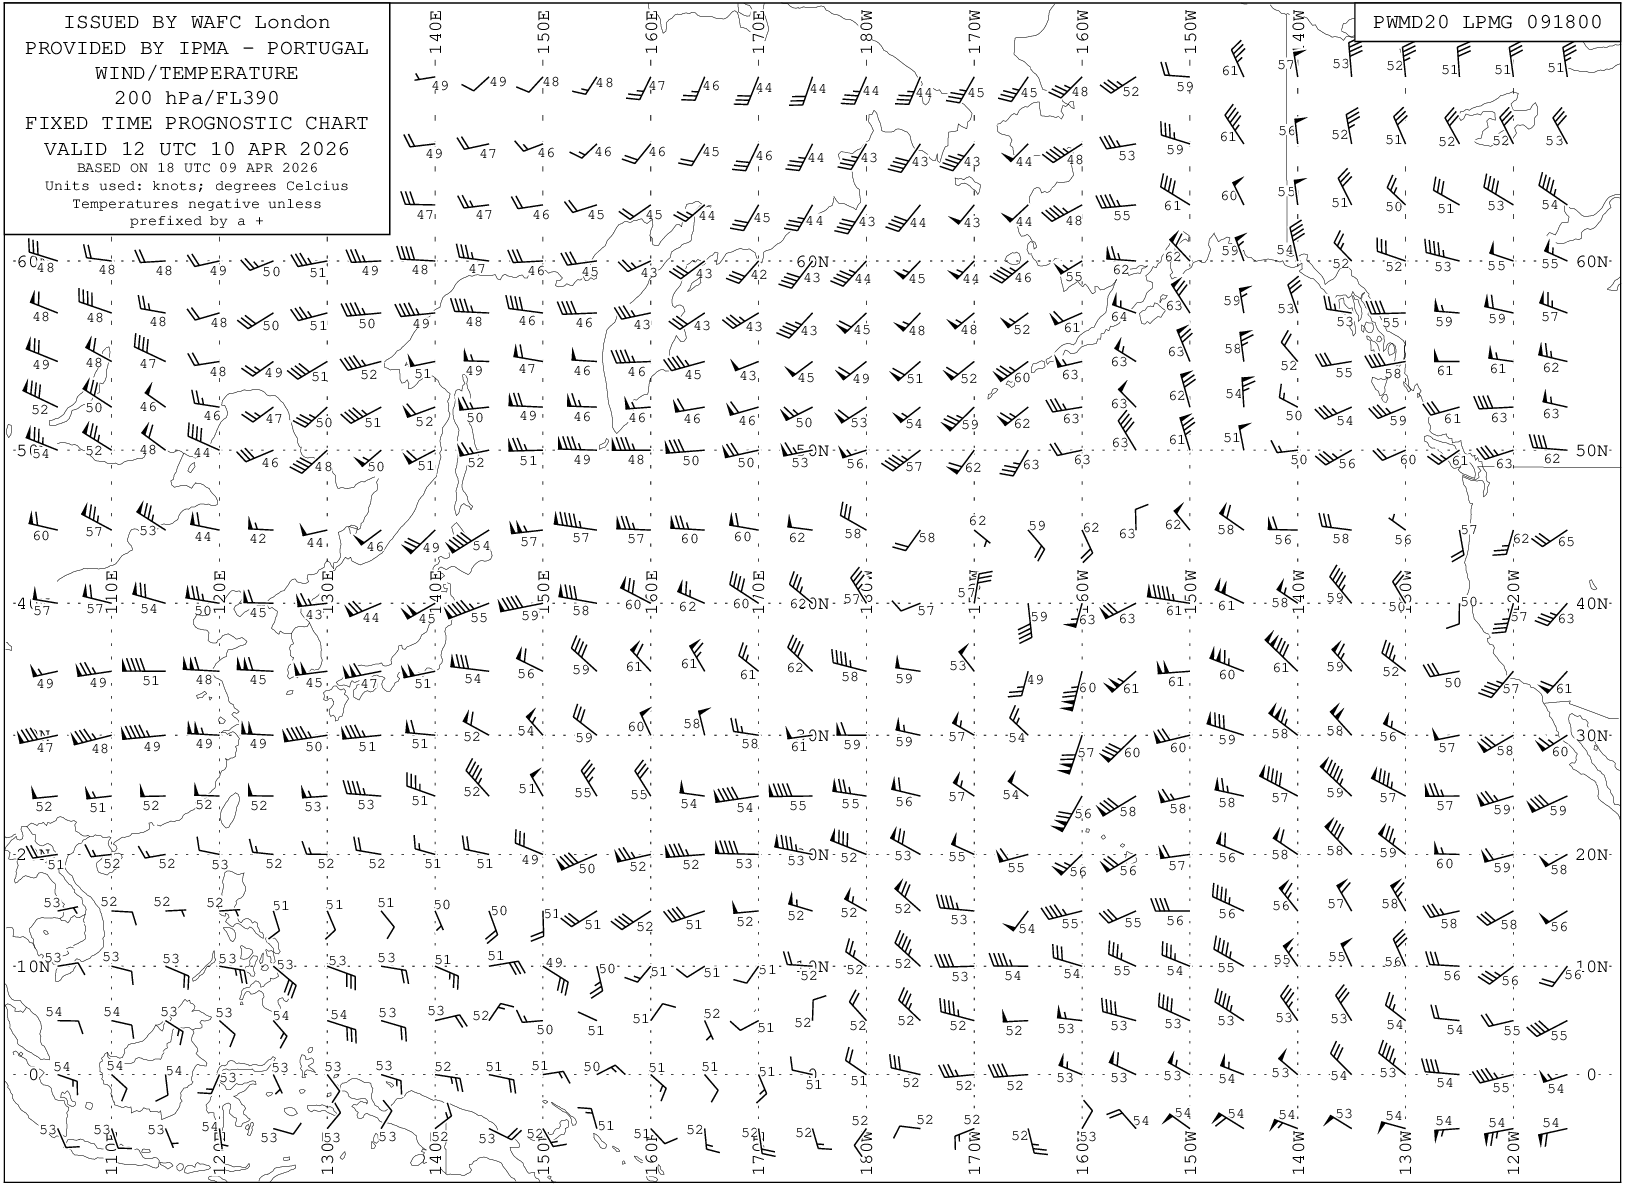 ISSUED BY WAFC London
PROVIDED BY IPMA - PORTUGAL
WIND/TEMPERATURE
200 hPa/FL390
FIXED TIME PROGNOSTIC CHART
VALID 12 UTC 10 APR 2026
BASED ON 18 UTC 09 APR 2026
Units used: knots; degrees Celcius
Temperatures negative unless
prefixed by a +
PWMD20 LPMG 091800
140E 150E 160E 170E 180W 170W 160W 150W 140W
49 49 48 48 47 46 44 44 44 44 45 45 48 52 59 61 57 53 52 51 51 51
49 47 46 46 46 45 46 44 43 43 43 44 48 53 59 61 56 52 51 52 52 53
47 47 46 45 45 44 45 44 43 44 43 44 48 55 61 60 55 51 50 51 53 54
60N 48 48 48 49 50 51 49 48 47 46 45 43 43 42 60N 43 44 45 44 46 55 62 62 59 54 52 52 53 55 55 60N
48 48 48 48 50 51 50 49 48 46 46 43 43 43 43 45 48 48 52 61 64 63 59 53 53 55 59 59 57
49 48 47 48 49 51 52 51 49 47 46 46 45 43 45 49 51 52 60 63 63 63 58 52 55 58 61 61 62
52 50 46 46 47 50 51 52 50 49 46 46 46 46 50 53 54 59 62 63 63 62 54 50 54 59 61 63 63
54 52 48 44 46 48 50 51 52 51 49 48 50 50 53 50N 56 57 62 63 63 63 61 51 50 56 60 61 63 62 50N
60 57 53 44 42 44 46 49 54 57 57 57 60 60 62 58 58 62 59 62 63 62 58 56 58 56 57 62 65
110E 120E 130E 140E 150E 160E 170E 180W 170W 160W 150W 140W 130W 120W
57 57 54 50 45 43 44 45 55 59 58 60 62 60 62 57 57 57 59 63 63 61 61 58 59 50 50 57 63 40N
49 49 51 48 45 45 47 51 54 56 59 61 61 61 62 58 59 53 49 60 61 61 60 61 59 52 50 57 61
47 48 49 49 49 50 51 51 52 54 59 60 58 58 61 30N 59 59 57 54 57 60 60 59 58 58 56 57 58 60 30N
52 51 52 52 52 53 53 51 52 51 55 55 54 54 55 55 56 57 54 56 58 58 58 57 59 57 57 59 59
51 52 52 53 52 52 52 51 51 49 50 52 52 53 53 52 53 55 55 56 56 57 56 58 58 59 60 59 58 20N
53 52 52 52 51 51 51 50 50 51 51 52 51 52 52 52 52 53 54 55 55 56 56 56 57 58 58 58 56
10N 53 53 53 53 53 53 53 51 51 49 50 51 51 51 52 52 52 53 54 54 55 54 55 55 55 56 56 56 56 10N
54 54 53 53 54 53 53 53 52 50 51 51 52 51 52 52 52 52 52 53 53 53 53 53 53 54 54 55 55
0 54 54 54 53 53 53 53 52 51 51 50 51 51 51 51 51 52 52 52 53 53 53 54 53 54 53 54 55 54 0
53 53 53 54 53 53 53 52 53 52 51 51 52 52 52 52 52 52 52 53 54 54 54 54 53 54 54 54 54
110E 120E 130E 140E 150E 160E 170E 180W 170W 160W 150W 140W 130W 120W